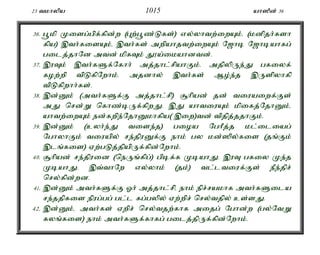 23 வமாலிய 1015 யாஸீன் 36
36. பூமி முளைப்பிக்கின்ற (புற்பூண்டுகள்) எல்லாவற்றையும், (மனிதர்களா
கிய) இவர்களையும், இவர்கள் அறியாதவற்றையும் ஜோடி ஜோடியாகப்
படைத்தானே அவன் மிகவும் தூய்மையானவன்.
37. இரவும் இவர்களுக்கோர் அத்தாட்சியாகும். அதிலிருந்து பகலைக்
கழற்றி விடுகிறோம். அதனால் இவர்கள் ஆழ்ந்த இருளிலாகி
விடுகிறார்கள்.
38. இன்னும் (அவர்களுக்கு அத்தாட்சி) சூரியன் தன் வரையறைக்குள்
அது சென்று கொண்டிருக்கிறது. இது யாவரையும் மிகைத்தோனும்,
யாவற்றையும் நன்கறிந்தோனுமாகிய(இறை)வன் விதித்ததாகும்.
39. இன்னும் (உலர்ந்து வளைந்த) பழைய பேரீத்த மட்டையைப்
போலாகும் வரையில் சந்திரனுக்கு நாம் பல மன்ஸில்களை (தங்கும்
இடங்களை) ஏற்படுத்தியிருக்கின்றோம்.
40. சூரியன் சந்திரனை (நெருங்கிப்) பிடிக்க முடியாது. இரவு பகலை முந்த
முடியாது. இவ்வாறே எல்லாம் (தம்) வட்டவரைக்குள் நீந்திச்
செல்கின்றன.
41. இன்னும் அவர்களுக்கு ஓர் அத்தாட்சி, நாம் நிச்சயமாக அவர்களுடைய
சந்ததிகளை நிரப்பப் பட்ட கப்பலில் ஏற்றிச் செல்வதில் உள்ளது.
42. இன்னும், அவர்கள் ஏறிச் செல்வதற்காக அதைப் போன்ற (பல்வேறு
கலங்களை) நாம் அவர்களுக்காகப் படைத்திருக்கின்றோம்.